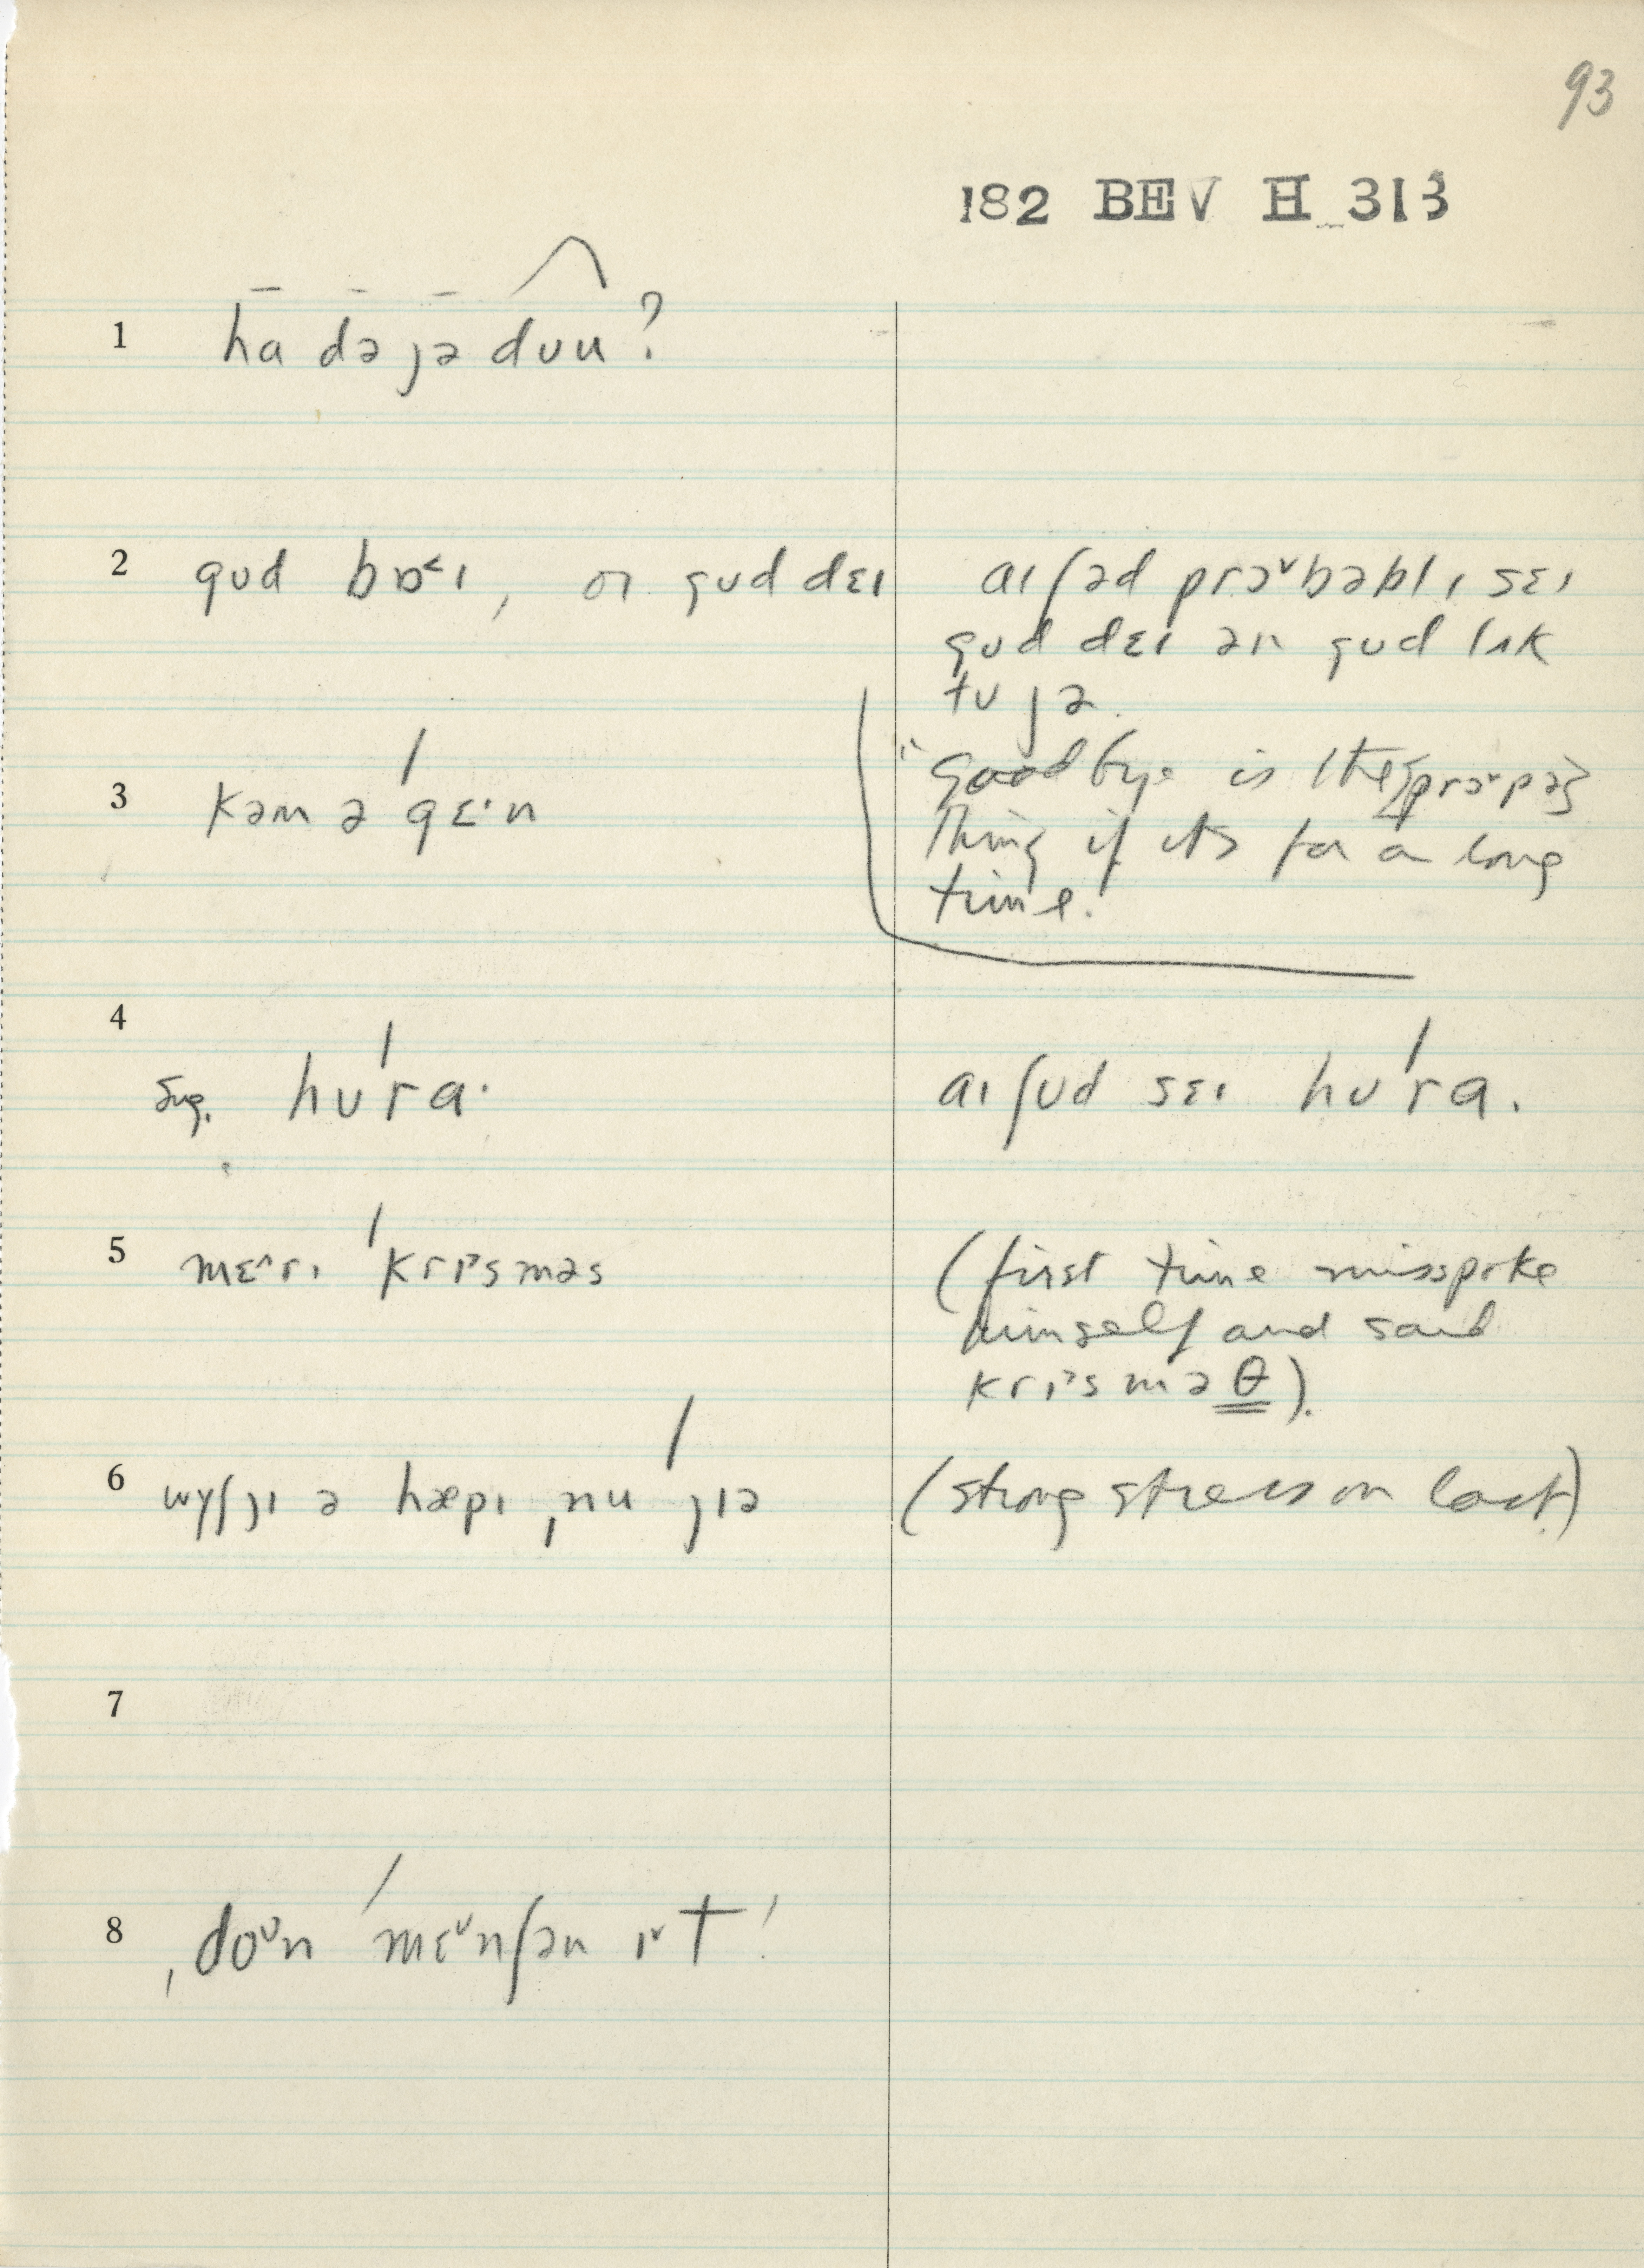 93
182 BEV H 313
1 ha də ȷə dʊu?
2 gʊd bɒ˂ɪ, or gʊd dɛɪ
aɪ ʃəd prɔ˅bəblɪ sɛɪ
gʊd dɛɪ ən gʊd lʌk
tʊ ȷə.
"Goodbye is the [prɔ˅pə]
thing if its for a long
time.
3 kəm ə gɛ·n
4
Sug. hʊ'ra·
aɪ ʃʊd sɛɪ hʊ'ra.
5 mɛ^rɪ 'krɪ˃sməs
(first time misspoke
himself and said
krɪ˃sməθ).
6 wɣʃ ȷɪ ə hæpɪ ˌnu ȷɪə
(strong stress on last)
7
8 ˌdo˅n 'mɛ˅nʃən ɪ˅t!